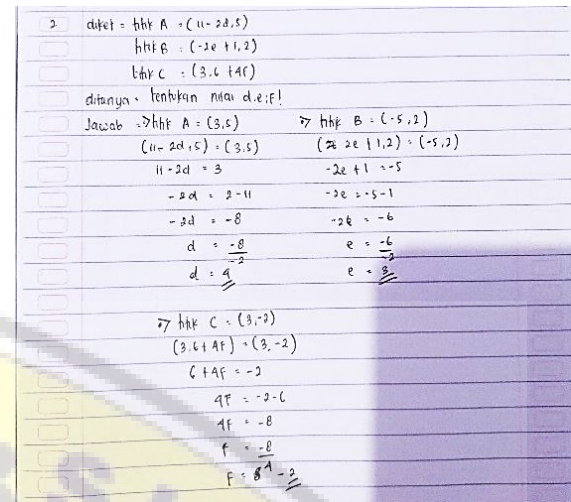 2 diket = titik A = (11-2d,5)
titik B = (-2e+1,2)
titik C = (3.6+4f)
ditanya = tentukan nilai d.e.f!
Jawab => titik A = (3,5)
(11-2d,5) = (3.5)
11-2d = 3
-2d = 3-11
-2d = -8
d = -8/-2
d = 4
=> titik B = (-5,2)
(2e 2e+1,2) = (-5,2)
-2e+1 = -5
-2e = -5-1
-2e = -6
e = -6/-2
e = 3
=> titik C = (3,-2)
(3.6+4f) = (3,-2)
6+4f = -2
4f = -2-6
4f = -8
f = -8/4
F = -2